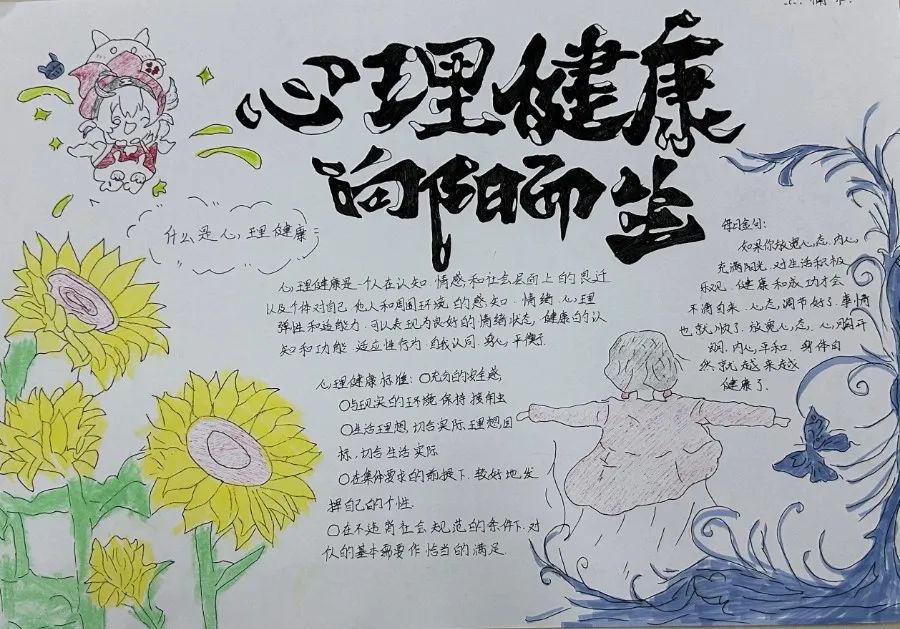 心理健康
向阳而生
什么是心理健康
心理健康是一个人在认知 情感和社会层面上的
以及个体对自己 他人和周围环境的感知. 情绪 心理
弹性和适能力 可以表现为良好的情绪状态, 健康的认
知和功能 适应性行为 自我认同. 身心平衡.
心理健康标准: ○充分的安全感,
○与现实的环境 保持 接触
○生活理想, 切合实际, 理想, 目
标, 切合生活实际
○在集体要求的前提下, 较好地发
挥自己的个性.
○在不违背社会规范的条件下, 对
的基本需要作恰当的满足.
每日金句:
如果你放宽心态, 内心
充满阳光. 对生活积极
乐观. 健康和成功才会
不请自来. 心态, 调节好了. 事情
也就顺了. 放宽心态, 心胸开
阔. 内心平和. 身体自
然就越来越
健康了.